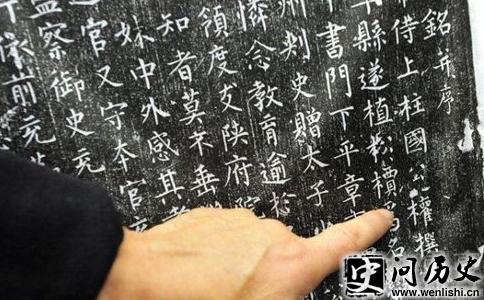 銘并序
侍上柱國公權撰
縣遂植松檟
書門下平章
州刺史贈太子
憐念教育逾
領度支陝府院
知者莫不垂
妹中外感其
官又守本官充
監察御史充
前充
史问历史
www.wenlishi.cn